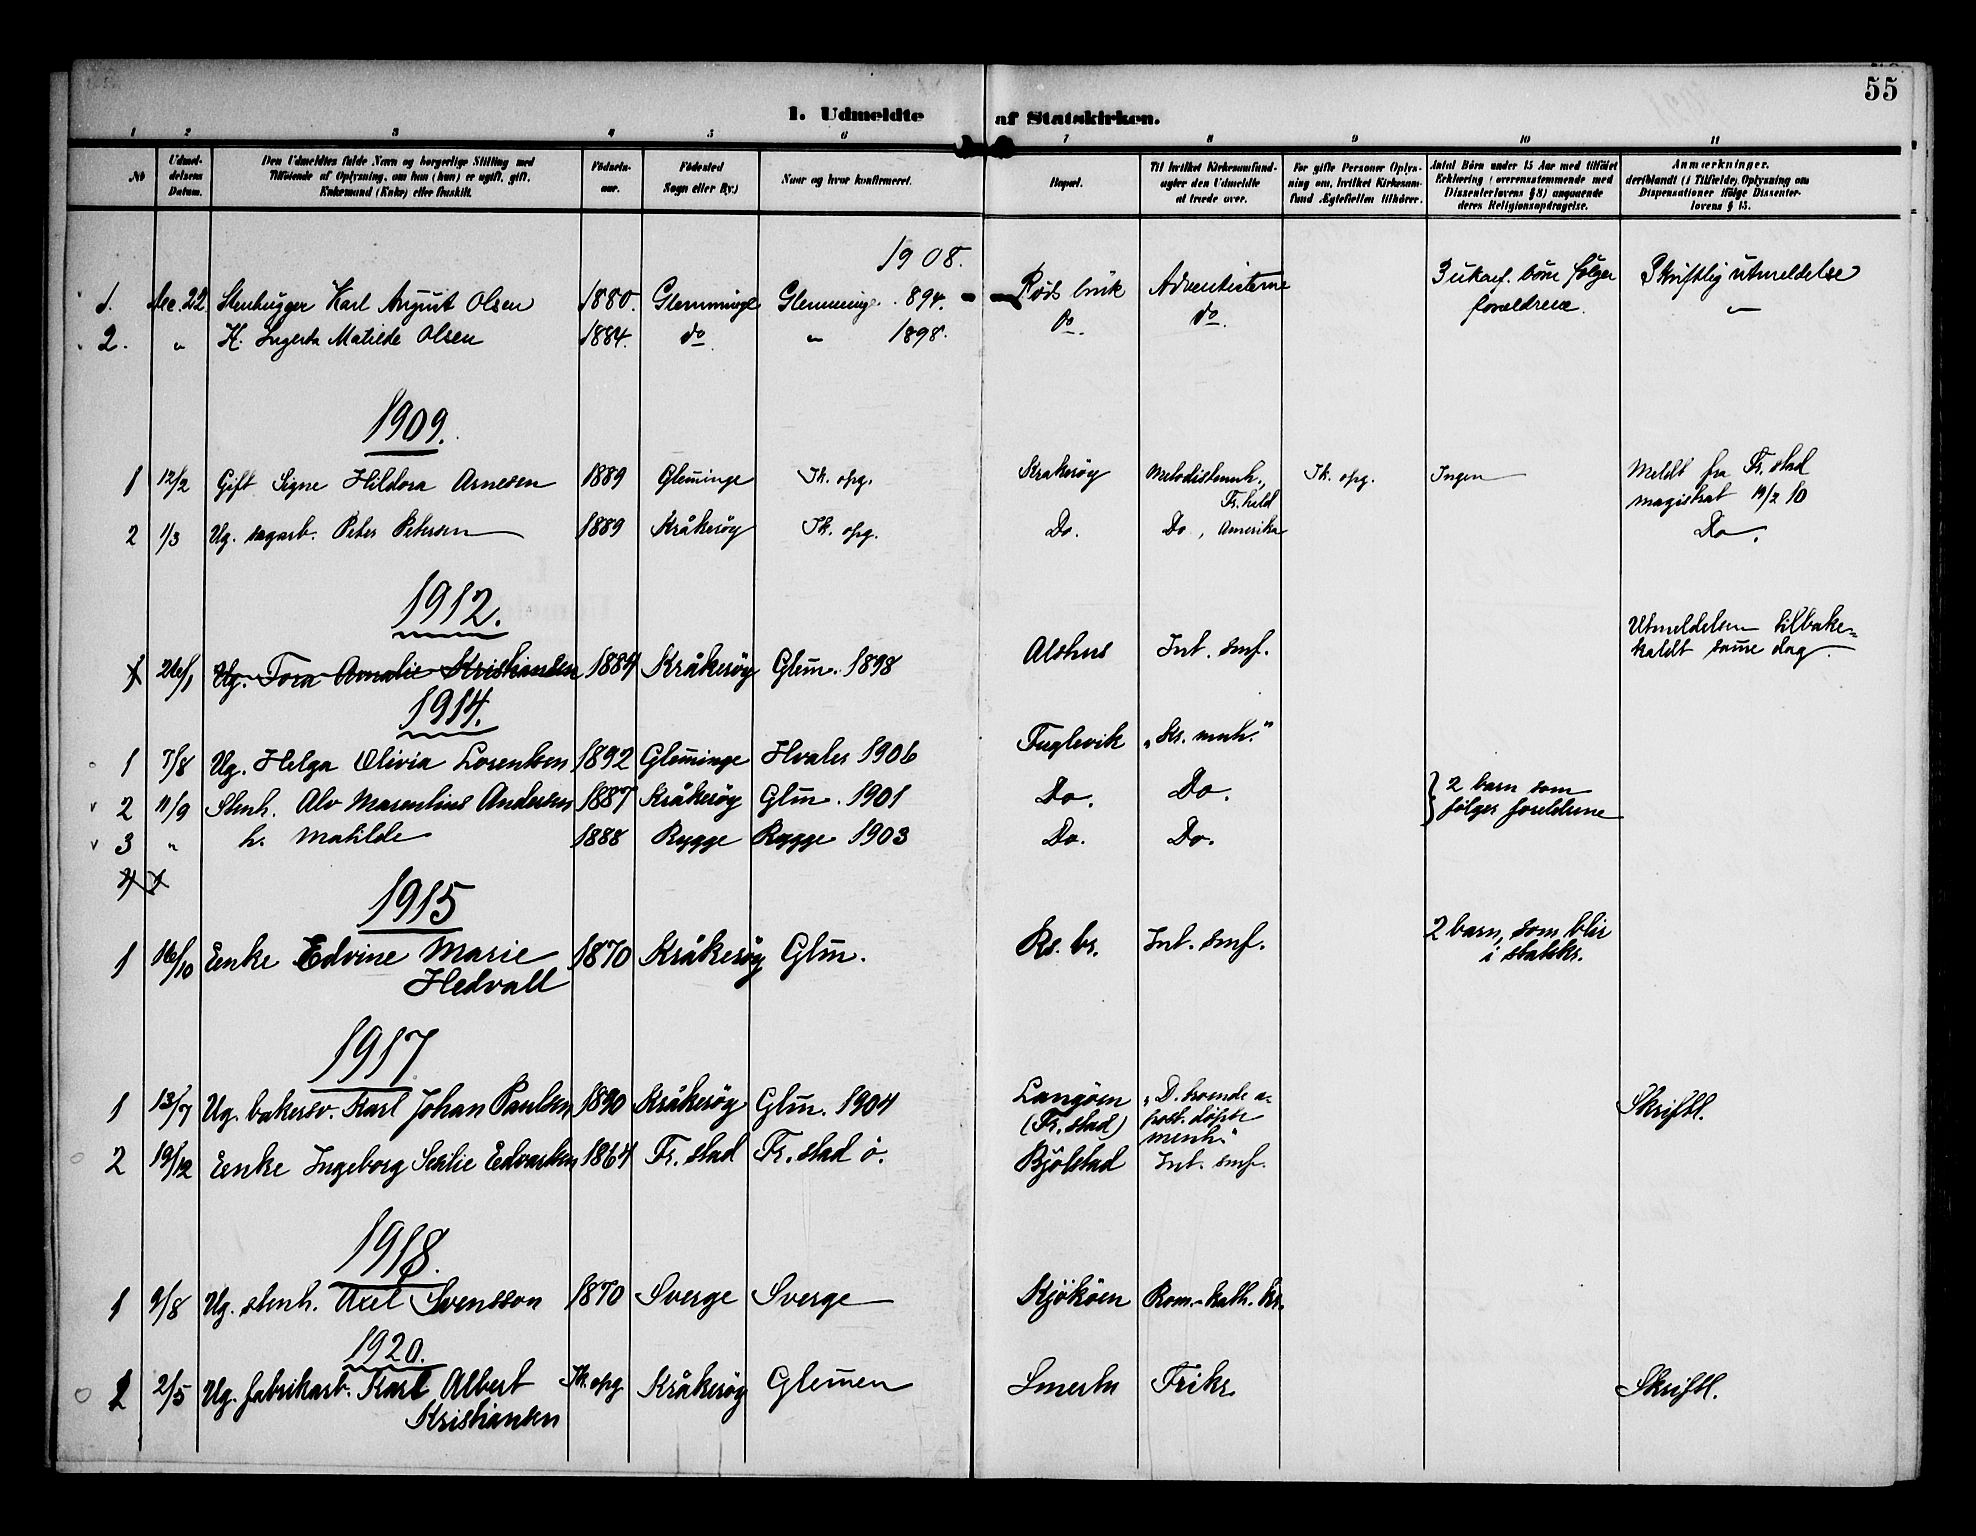 55
1. Udmeldte af Statskirken.
1 2 3 4 5 6 7 8 9 10 11
No
Udmel-
delsens
Datum.
Den Udmeldtes fulde Navn og borgerlige Stilling med
Tilføiende af Oplysning, om han (hun) er ugift, gift,
Enkemand (Enke) eller fraskilt.
Fødsels-
aar.
Fødested
Sogn eller By.)
Naar og hvor konfirmeret.
Bopæl.
Til hvilket Kirkesamfund
agter den Udmeldte
at træde over.
For gifte Personer Oplys-
ning om, hvilket Kirkesam-
fund Ægtefællen tilhører.
Antal Børn under 15 Aar med tilføiet
Erklæring (overensstemmende med
Dissenterlovens § 8) angaaende
deres Religionsopdragelse.
Anmærkninger.
deriblandt (i Tilfælde) Oplysning om
Dispensationer ifølge Dissenter-
lovens § 15.
1908.
1. Dec. 22 Stenhugger Karl August Olsen 1880. Glemminge Glemminge 894. Röds bruk Adventisterne 3 ukonf. börn følger
foreldrene.
Skriftlig utmeldelse
2. " H. Matilde Olsen 1884. do " 1898. Do. do. "
1909.
1 12/2 Gift Signe Hildora Arnesen 1889 Glem̄inge Ik. opg. Krakeröy Metodistmenh., Ik. opg. Ingen Meldt fra Fr.stad
magistrat 19/2 10
2 1/3 Ug. sagarb. Peter Petersen 1889 Kråkeröy Ik. opg. Do. Do, Amerika Do.
1912.
1 26/1 Ug. Tora Amalie Kristiansen 1884 Kråkeröy Glem. 1898 Alshus Int. smf. Utmeldelsen tilbake-
kaldt sam̄e dag.
1914.
1 7/8 Ug. Helga Olivia Lorentsen 1892 Glem̄inge Hvaler 1906 Fuglevik "Kr. menh."
2 11/9 Stenh. Alv Andersen 1887 Kråkeröy Glm. 1901 Do. Do. 2 barn som
følger foreldrene
3 " h. Matilde 1888 Rygge Rygge 1903 Do. Do.
4
1915
1 16/10 Enke Edvine Marie
Hedvall
1870 Kråkeröy Glm. Rs. br. Int. smf. 2 barn, som blir
i statskr.
1917
1 13/7 Ug. bakersv. Karl Johan Paulsen 1890 Kråkeröy Glm. 1904 Langöen
(Fr.stad)
"D. troende a-
post. döpte
menh."
Skriftl.
2 19/12 Enke Ingeborg Sesilie Edvardsen 1864 Fr.stad Fr.stad ö. Bjölstad Int. smf.
1918.
1 9/8 Ug. stenh. Axel Svensson 1870 Sverge Sverge Kjököen Rom.-kath. kr.
1920.
1 2/5 Ug. fabrikarb. Karl Albert
Kristiansen
Ik. opg Kråkeröy Glem̄en Smertu Frikr. Skriftl.